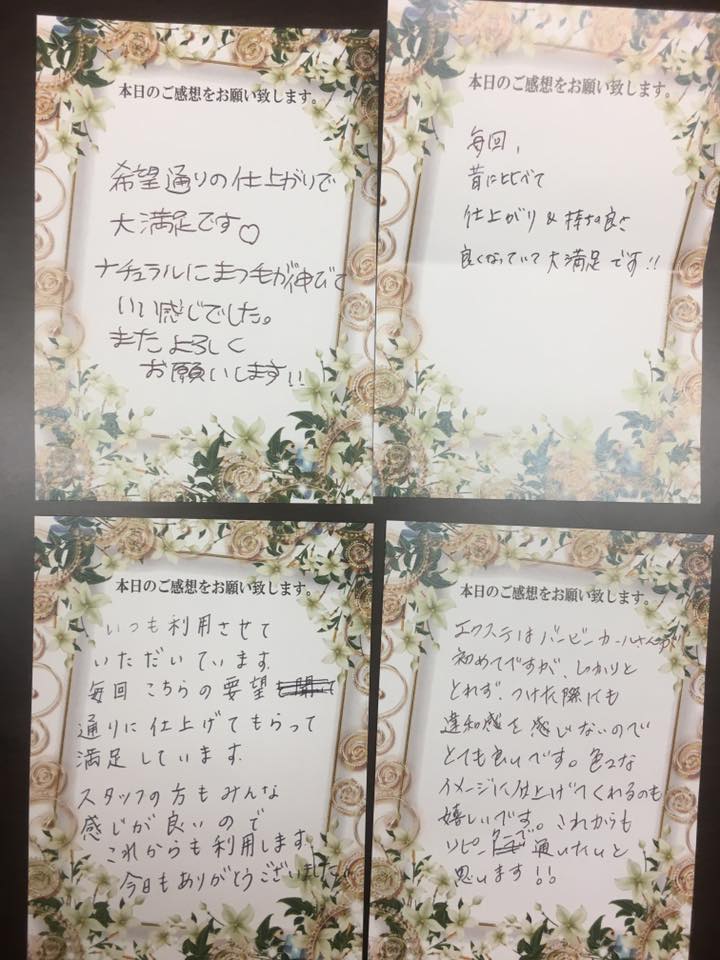 本日のご感想をお願い致します。
希望通りの仕上がりで
大満足です♡
ナチュラルにまつ毛が伸びて
いい感じでした。
またよろしく
お願いします!!
本日のご感想をお願い致します。
毎回、
昔に比べて
仕上がり&持ちの良さ
良くなっていて大満足です!!
本日のご感想をお願い致します。
いつも利用させて
いただいています。
毎回こちらの要望
通りに仕上げてもらって
満足しています。
スタッフの方もみんな
感じが良いので
これからも利用します。
今日もありがとうございました
本日のご感想をお願い致します。
エクステはバービーカールさんが
初めてですが、しっかりと
とれず、つけた際にも
違和感を感じないので
とても良いです。色々な
イメージに仕上げてくれるのも
嬉しいです。これからも
リピーターで通いたいと
思います!!